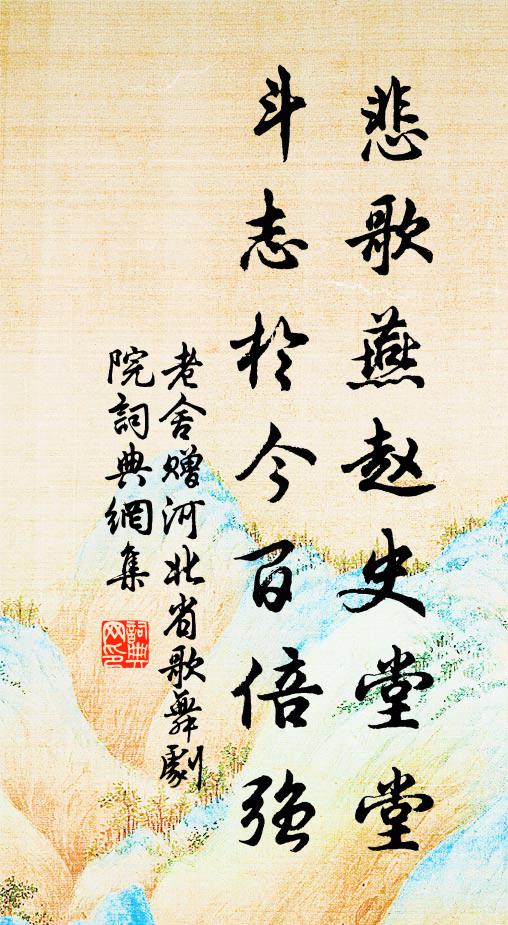 悲歌燕赵史堂堂
斗志於今百倍強
老舍赠河北省歌舞劇
院詞典網集
詞典网印